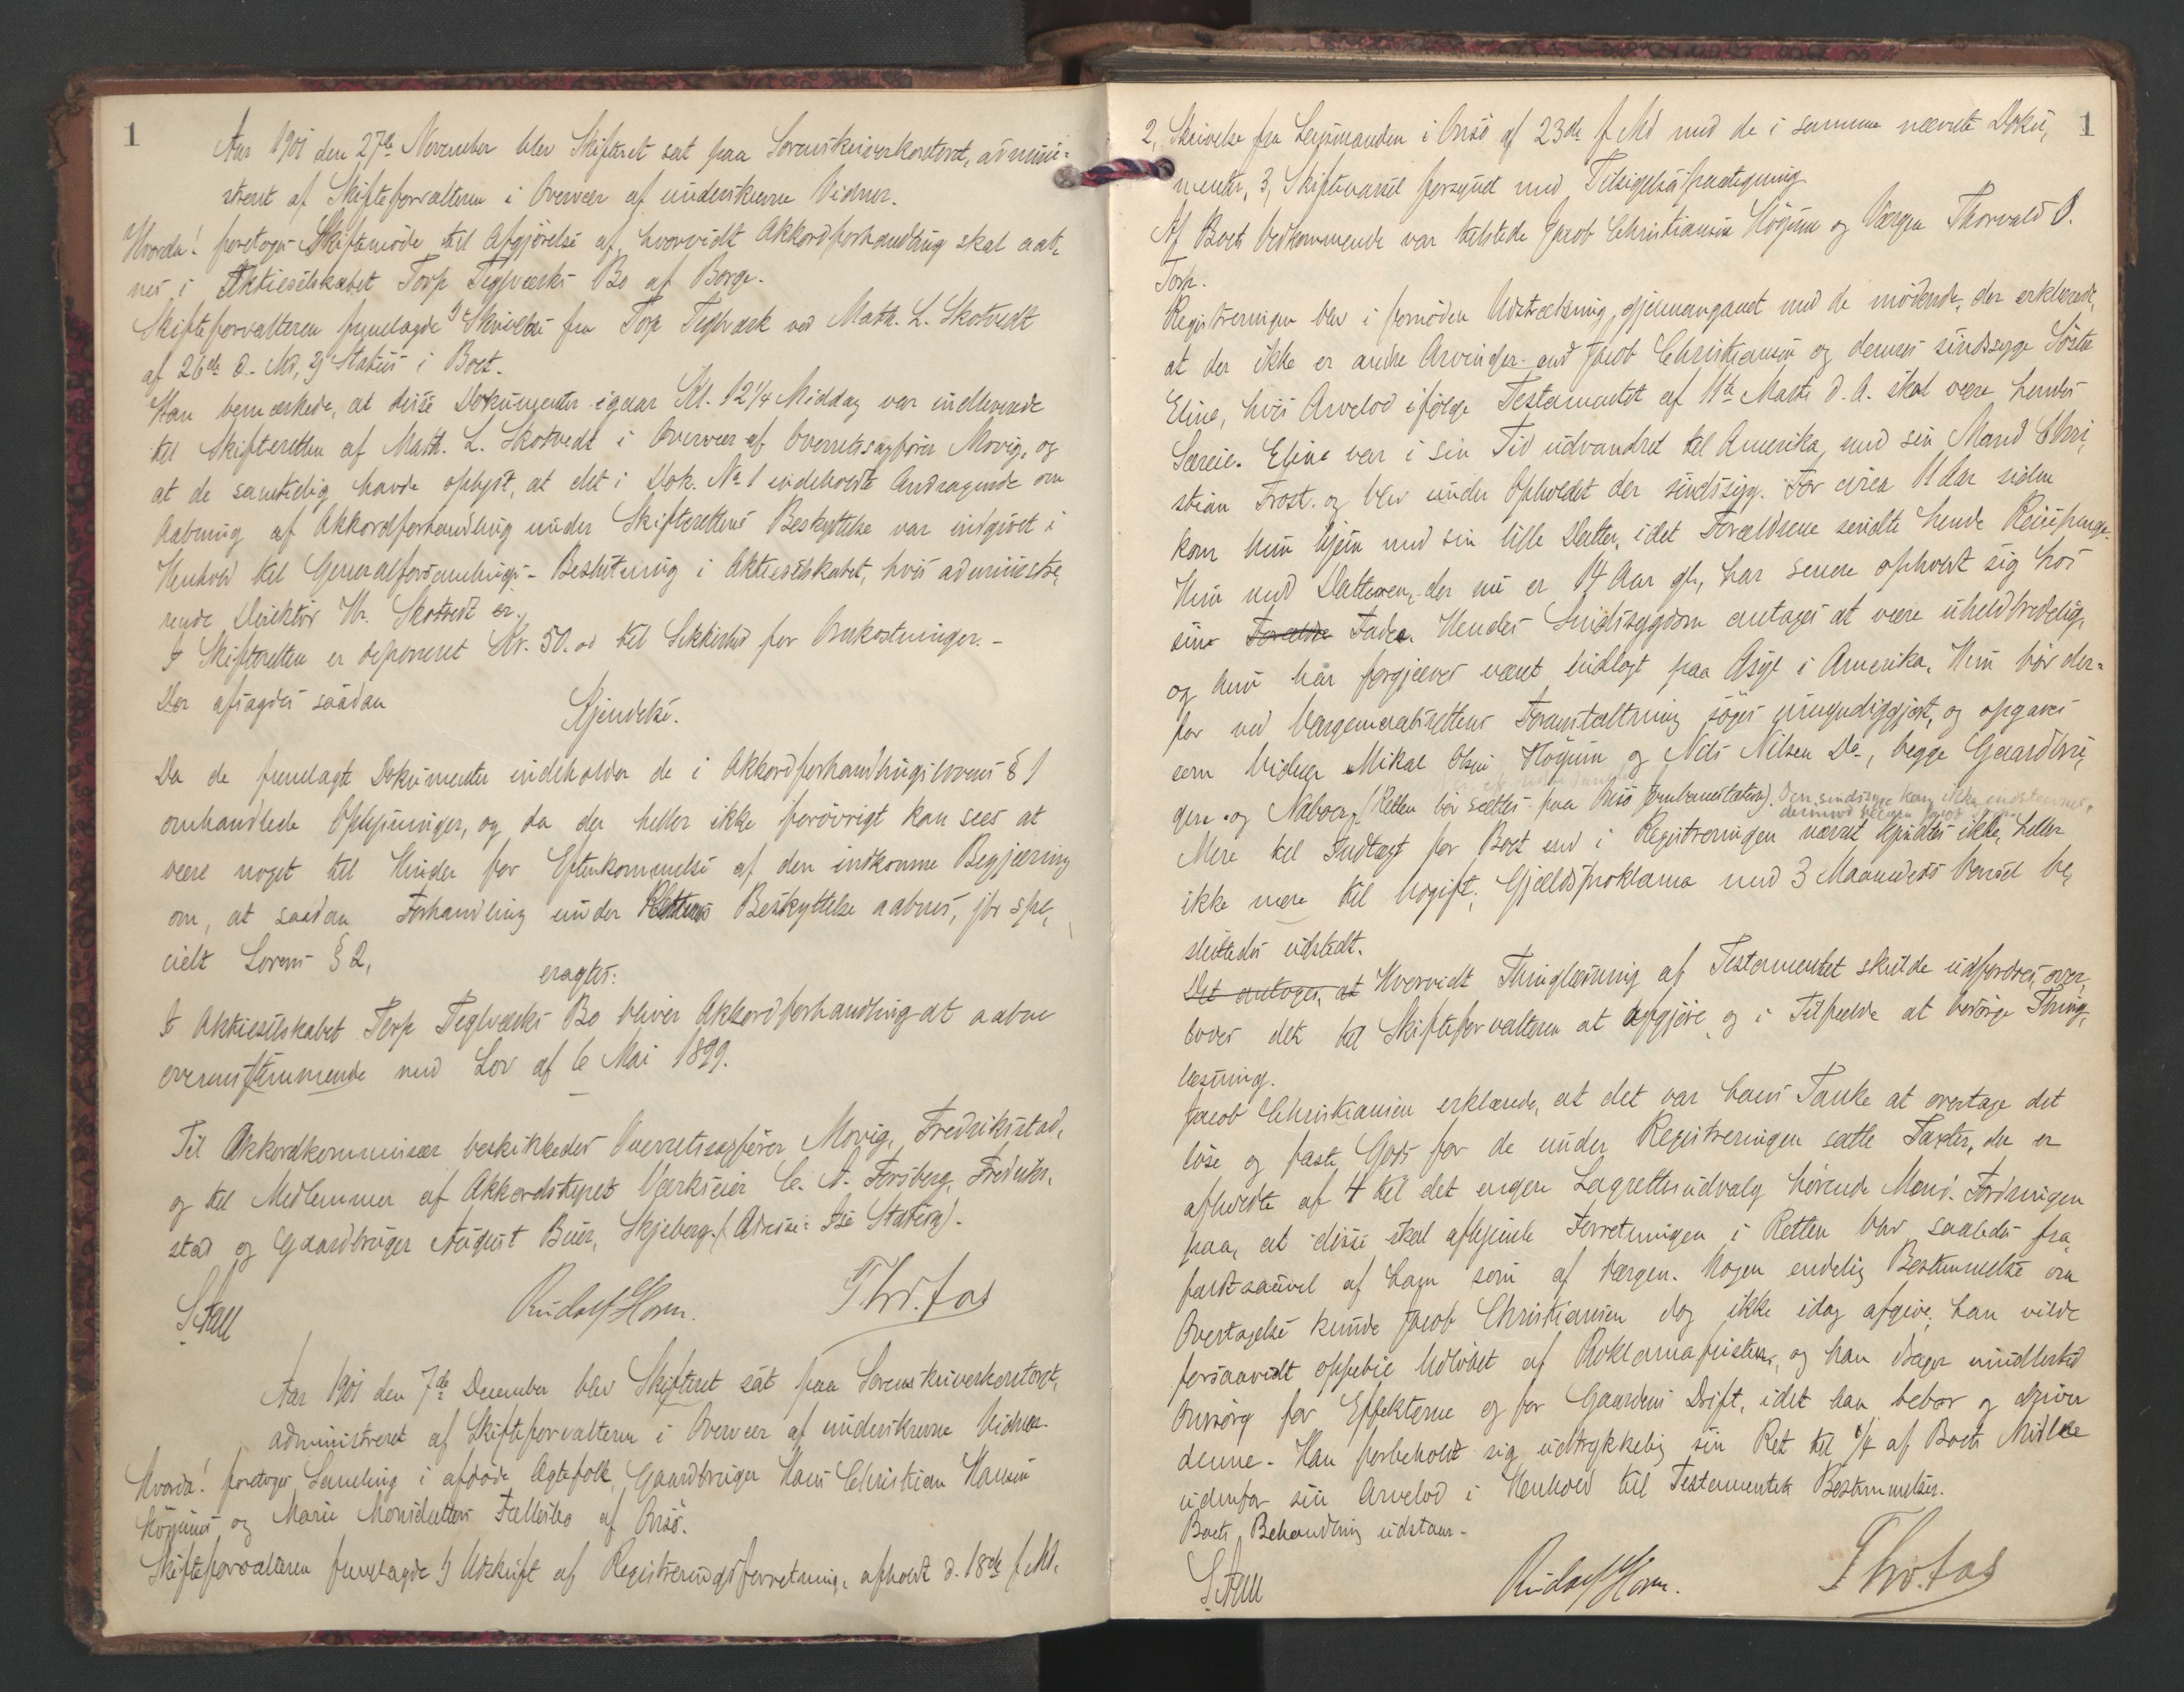 1
Aar 1901 den 27de November blev Skifteret sat paa Sorenskriverkontoret, admini-
streret af Skifteforvalteren i Overvær af underskrevne Vidner.
Hvorda! foretoges Skiftemöde til Afgjörelse af, hvorvidt Akkordforhandling skal aab-
nes i Aktieselskabet Torp Teglværks Bo af Borge.
Skifteforvalteren fremlagde 1, Skrivelse fra Torp Teglværk ved Math. L. Skotvedt
af 26de d. Md, 2, Status i Boet.
Han bemærkede, at disse Dokumenter igaar Kl. 12 1/4 Middag var indleverede
til Skifteretten af Math. L. Skotvedt i Overvær af Overretssagförer Movig, og
at de samtidig havde oplyst, at det i Dok. No 1 indeholdte Andragende om
Aabning af Akkordforhandling under Skifterettens Beskyttelse var indgivet i
Henhold til Generalforsamlings-Beslutning i Aktieselskabet, hvis administre-
rende Direktör Hr. Skotvedt er.
I Skifteretten er deponeret Kr. 50.00 til Sikkerhed for Omkostninger.-
Der afsagdes saadan
Kjendelse.
Da de fremlagte Dokumenter indeholder de i Akkordforhandlingslovens § 1
omhandlede Oplysninger, og da der heller ikke forövrigt kan sees at
være noget til Hinder for Efterkommelse af den indkomne Begjæring
om, at saadan Forhandling under Rettens Beskyttelse aabnes, jfr spe-
cielt Lovens § 2,
eragtes:
I Aktieselskabet Torp Teglværks Bo bliver Akkordforhandling at aabne
overensstemmende med Lov af 6 Mai 1899.
Til Akkordkommissær beskikkedes Overretssagförer Movig, Fredrikstad,
og til Medlemmer af Akkordstyret Værkseier C. A. Forsberg, Fredrik-
stad og Gaardbruger August Buer, Skjeberg. (Adresse: Ise Station).
Stall Rudolf Horn. Thv. Fos
Aar 1901 den 7de December blev Skifteret sat paa Sorenskriverkontoret,
administreret af Skifteforvalteren i Overvær af underskrevne Vidner.
Hvorda! foretoges Samling i afdöde Ægtefolk, Gaardbruger Hans Christian Hansen
Högnes og Marie Monsdatters Fællesbo af Onsö.
Skifteforvalteren fremlagde 1, Udskrift af Registreringsforretning, afholdt d. 18de f. Md,
1
2, Skrivelse fra Lensmanden i Onsö af 23de f. Md med de i samme nævnte Doku-
menter, 3, Skiftevarsel forsynet med Tilsigelsespaategning.
Af Boets Vedkommende var tilstede Jacob Christiansen Högnes og Værgen Thorvald O.
Torp.
Registreringen blev i fornöden Udstrækning gjennemgaaet med de mödende, der erklærede,
at der ikke er andre Arvinger end Jacob Christiansen og dennes sindssyge Söster
Eline, hvis Arvelod ifölge Testamentet af 11te Marts d. A. skal være hendes
Særeie. Eline var i sin Tid udvandret til Amerika med sin Mand Chri-
stian Frost og blev under Opholdet der sindssyg. For circa 11 Aar siden
kom hun hjem med sin lille Datter, idet Forældrene sendte hende Reisepenge.
Hun med Datteren, der nu er 14 Aar gl., har senere opholdt sig hos
sin Forældre Fader. Hendes Sindssygdom antages at være uhelbredelig,
og hun har forgjæves været indlagt paa Asyl i Amerika. Hun bör der-
for ved Værgemaalsrettens Foranstaltning söges umyndiggjort, og opgaves
som Vidner Mikal Olsen Högnes og Nils Nilsen Do., begge Gaardbru-
gere og Naboer. (Retten bör sættes paa Onsö Jernbanestation). Den sindssyge kan ikke indstevnes,
derimod Værgen
Mere til Indtægt for Boet end i Registreringen nævnt kjendtes ikke, heller
ikke mere til Udgift. Gjældsproklama med 3 Maaneders Varsel be-
sluttedes udstedt.
Det antoges, at Hvorvidt Thinglæsning af Testamentet skulde udfordres, over-
lodes det til Skifteforvalteren at afgjöre og i Tilfælde at besörge Thing-
læsning.
Jacob Christiansen erklærede, at det var hans Tanke at overtage det
löse og faste Gods for de under Registreringen satte Taxter, der er
afholdte af 4 til det engere Lagretteudvalg hörende Mænd. Fordringen
paa, at disse skal afhjemle Forretningen i Retten blev saaledes fra-
faldt saavel af ham som af Værgen. Nogen endelig Bestemmelse om
Overtagelse kunde Jacob Christiansen dog ikke idag afgive; han vilde
forsaavidt oppebie Udlöbet af Proklamafristen, og han drager imidlertid
Omsorg for Effekterne og for Gaardens Drift, idet han bebor og driver
denne. Han forbeholdt sig udtrykkelig sin Ret til 1/4 af Boets Midler
udenfor sin Arvelod i Henhold til Testamentets Bestemmelser.
Boets Behandling udstaar.
Stall Rudolf Horn. Thv. Fos